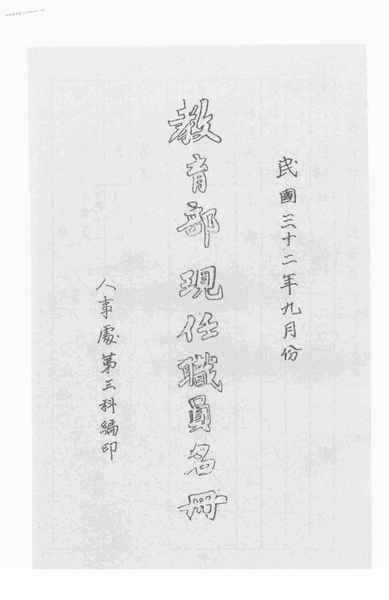 民國三十二年九月份
教育部現任職員名冊
人事處第三科編印